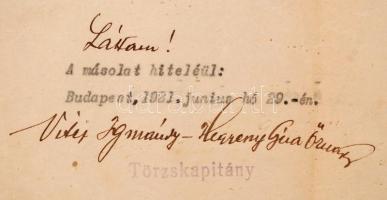 Láttam!
A másolat hiteléül:
Budapest, 1921. junius hó 29.-én.
Vitéz Igmándy-Hegyessy Géza
Törzskapitány